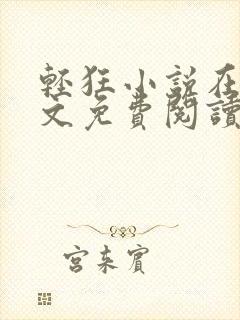 輕狂小說在
文免費閱讀
宮來賓